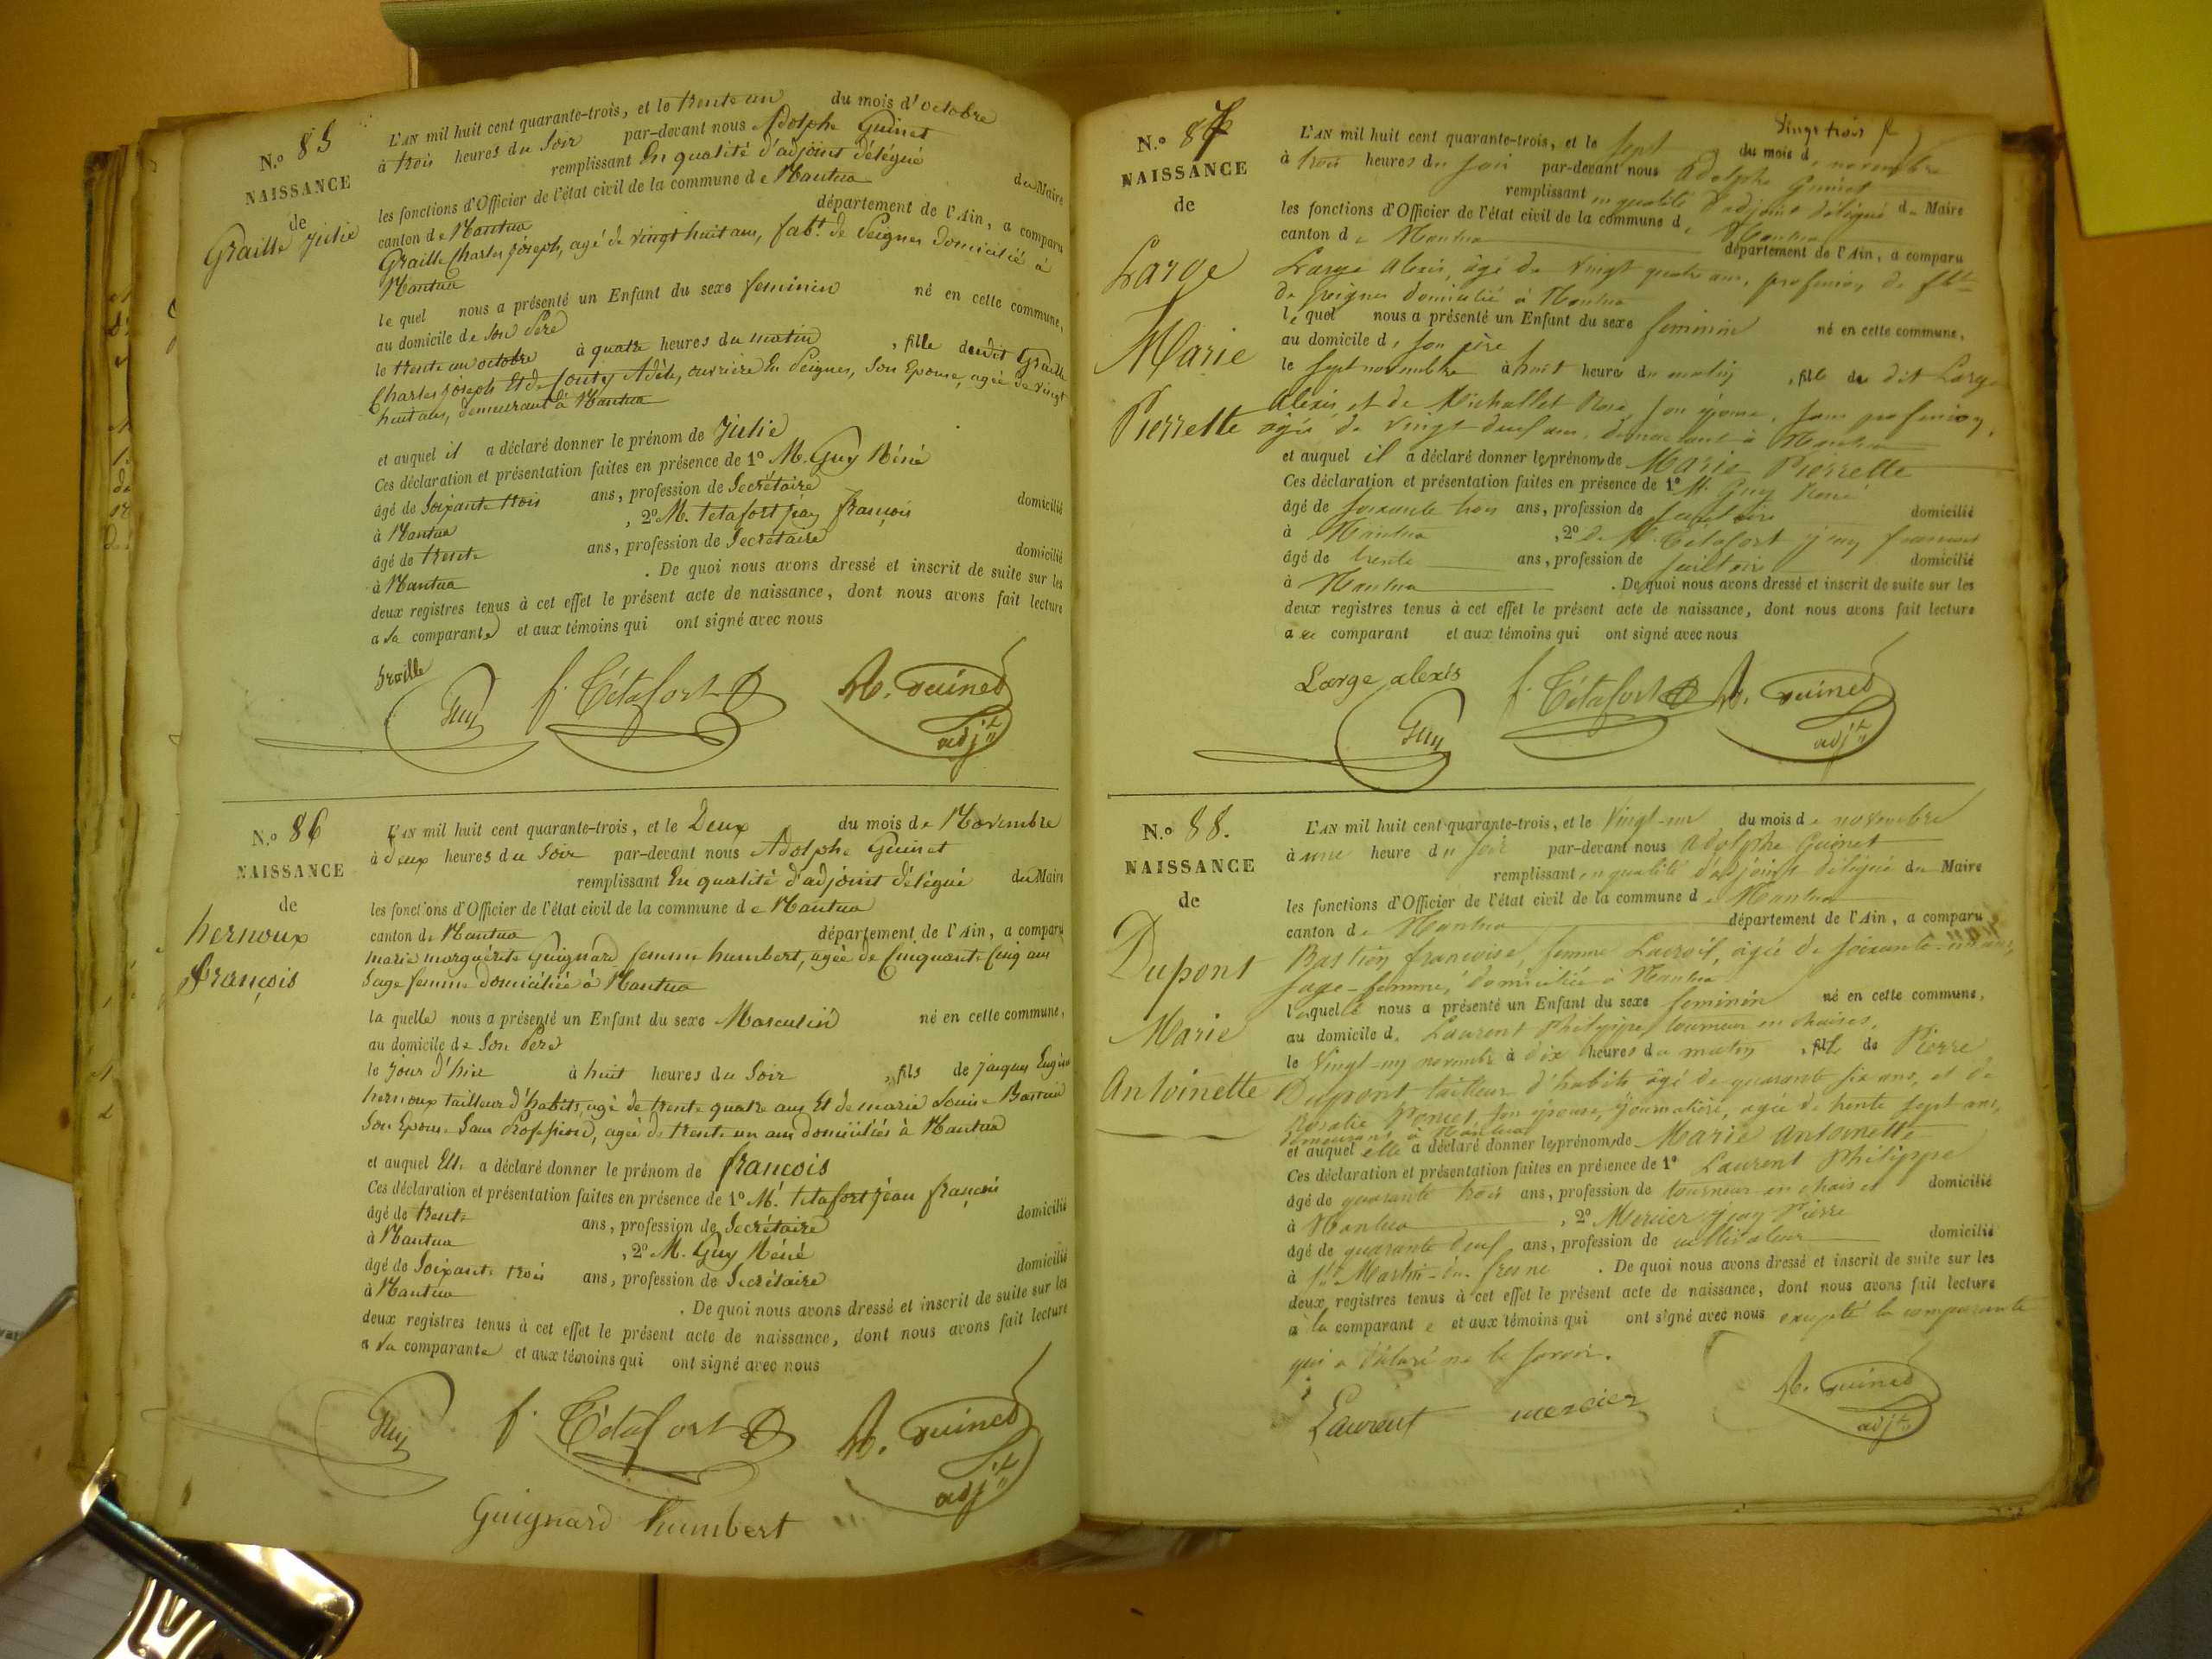 N.º 85
NAISSANCE
de
Graille Julie
L'AN mil huit cent quarante-trois, et le trente un du mois d'octobre
à trois heures du Soir par-devant nous Adolphe Guinet
remplissant En qualité d'adjoint délégué du Maire
les fonctions d'Officier de l'état civil de la commune de Nantua
canton de Nantua département de l'Ain, a comparu
Graille Charles Joseph, agé de vingt huit ans, fabt. de Peignes domicilié à
Nantua
le quel nous a présenté un Enfant du sexe feminin né en cette commune,
au domicile de son Père
le trente un octobre à quatre heures du matin, fille dudit Graille
Charles Joseph Et de Adèle, ouvrière En Peignes, Son Epouse, agée de vingt
huit ans, demeurant à Nantua
et auquel il a déclaré donner le prénom de Julie
Ces déclaration et présentation faites en présence de 1º M. Guy Réné
âgé de Soixante trois ans, profession de Secrétaire domicilié
à Nantua, 2º M. Tétafort Jean François
âgé de trente ans, profession de Secrétaire domicilié
à Nantua. De quoi nous avons dressé et inscrit de suite sur les
deux registres tenus à cet effet le présent acte de naissance, dont nous avons fait lecture
a la comparante et aux témoins qui ont signé avec nous
Graille
Guy f. Tétafort A. Guinet
adjt
N.º 86
NAISSANCE
de
hernoux
françois
L'AN mil huit cent quarante-trois, et le Deux du mois de Novembre
à deux heures du Soir par-devant nous Adolphe Guinet
remplissant En qualité d'adjoint délégué du Maire
les fonctions d'Officier de l'état civil de la commune de Nantua
canton de Nantua département de l'Ain, a comparu
marie marguérite Guignard femme humbert, agée de Cinquante Cinq ans
Sage femme domiciliée à Nantua
la quelle nous a présenté un Enfant du sexe Masculin né en cette commune,
au domicile de Son Père
le jour d'hier à huit heures du Soir, fils de jacques Eugène
hernoux tailleur d'habits, agé de trente quatre ans Et de marie Louise
Son Epouse Sans Profession, agée de trente un ans domiciliés à Nantua
et auquel Elle a déclaré donner le prénom de françois
Ces déclaration et présentation faites en présence de 1º M. tétafort jean françois
âgé de trente ans, profession de Secrétaire domicilié
à Nantua, 2º M. Guy Réné
âgé de Soixante trois ans, profession de Secrétaire domicilié
à Nantua. De quoi nous avons dressé et inscrit de suite sur les
deux registres tenus à cet effet le présent acte de naissance, dont nous avons fait lecture
a la comparante et aux témoins qui ont signé avec nous
Guy f. Tétafort A. Guinet
adjt
Guignard humbert
Vingt trois
N.º 87
NAISSANCE
de
Large
Marie
Pierrette
L'AN mil huit cent quarante-trois, et le sept du mois de novembre
à trois heures du soir par-devant nous Adolphe Guinet
remplissant en qualité d'adjoint délégué du Maire
les fonctions d'Officier de l'état civil de la commune de Nantua
canton de Nantua département de l'Ain, a comparu
Large Alexis, âgé de vingt quatre ans, profession de fbt
de peignes domicilié à Nantua
le quel nous a présenté un Enfant du sexe feminin né en cette commune,
au domicile de son père
le sept novembre à huit heures du matin, fille du dit Large
Alexis et de Michallet Rose, son épouse, sans profession,
agée de vingt deux ans, demeurant à Nantua
et auquel il a déclaré donner les prénoms de Marie Pierrette
Ces déclaration et présentation faites en présence de 1º M. Guy René
âgé de soixante trois ans, profession de secrétaire domicilié
à Nantua, 2º de M. Tétafort jean francois
âgé de trente ans, profession de secrétaire domicilié
à Nantua. De quoi nous avons dressé et inscrit de suite sur les
deux registres tenus à cet effet le présent acte de naissance, dont nous avons fait lecture
a u comparant et aux témoins qui ont signé avec nous
Large alexis f. Tétafort A. Guinet
Guy adjt
N.º 88.
NAISSANCE
de
Dupont
Marie
Antoinette
L'AN mil huit cent quarante-trois, et le Vingt-un du mois de novembre
à une heure du soir par-devant nous Adolphe Guinet
remplissant en qualité d'adjoint délégué du Maire
les fonctions d'Officier de l'état civil de la commune de Nantua
canton de Nantua département de l'Ain, a comparu
Bastion françoise, femme Lacroix, âgée de soixante-un ans,
sage-femme, domiciliée à Nantua
laquelle nous a présenté un Enfant du sexe feminin né en cette commune,
au domicile de Laurent Philippe, tourneur en chaises,
le Vingt-un novembre à dix heures du matin, fille de Pierre
Dupont tailleur d'habits âgé de quarante six ans, et de
Rosalie Poncet son épouse, journalière, agée de trente sept ans,
demeurans à Nantua
et auquel elle a déclaré donner les prénoms de Marie Antoinette
Ces déclaration et présentation faites en présence de 1º Laurent Philippe
âgé de quarante trois ans, profession de tourneur en chaises domicilié
à Nantua, 2º Mercier jean Pierre
âgé de quarante deux ans, profession de cultivateur domicilié
à St. Martin-du-fresne. De quoi nous avons dressé et inscrit de suite sur les
deux registres tenus à cet effet le présent acte de naissance, dont nous avons fait lecture
a la comparante et aux témoins qui ont signé avec nous excepté la comparante
qui a déclaré ne le savoir.
Laurent mercier A. Guinet
adjt